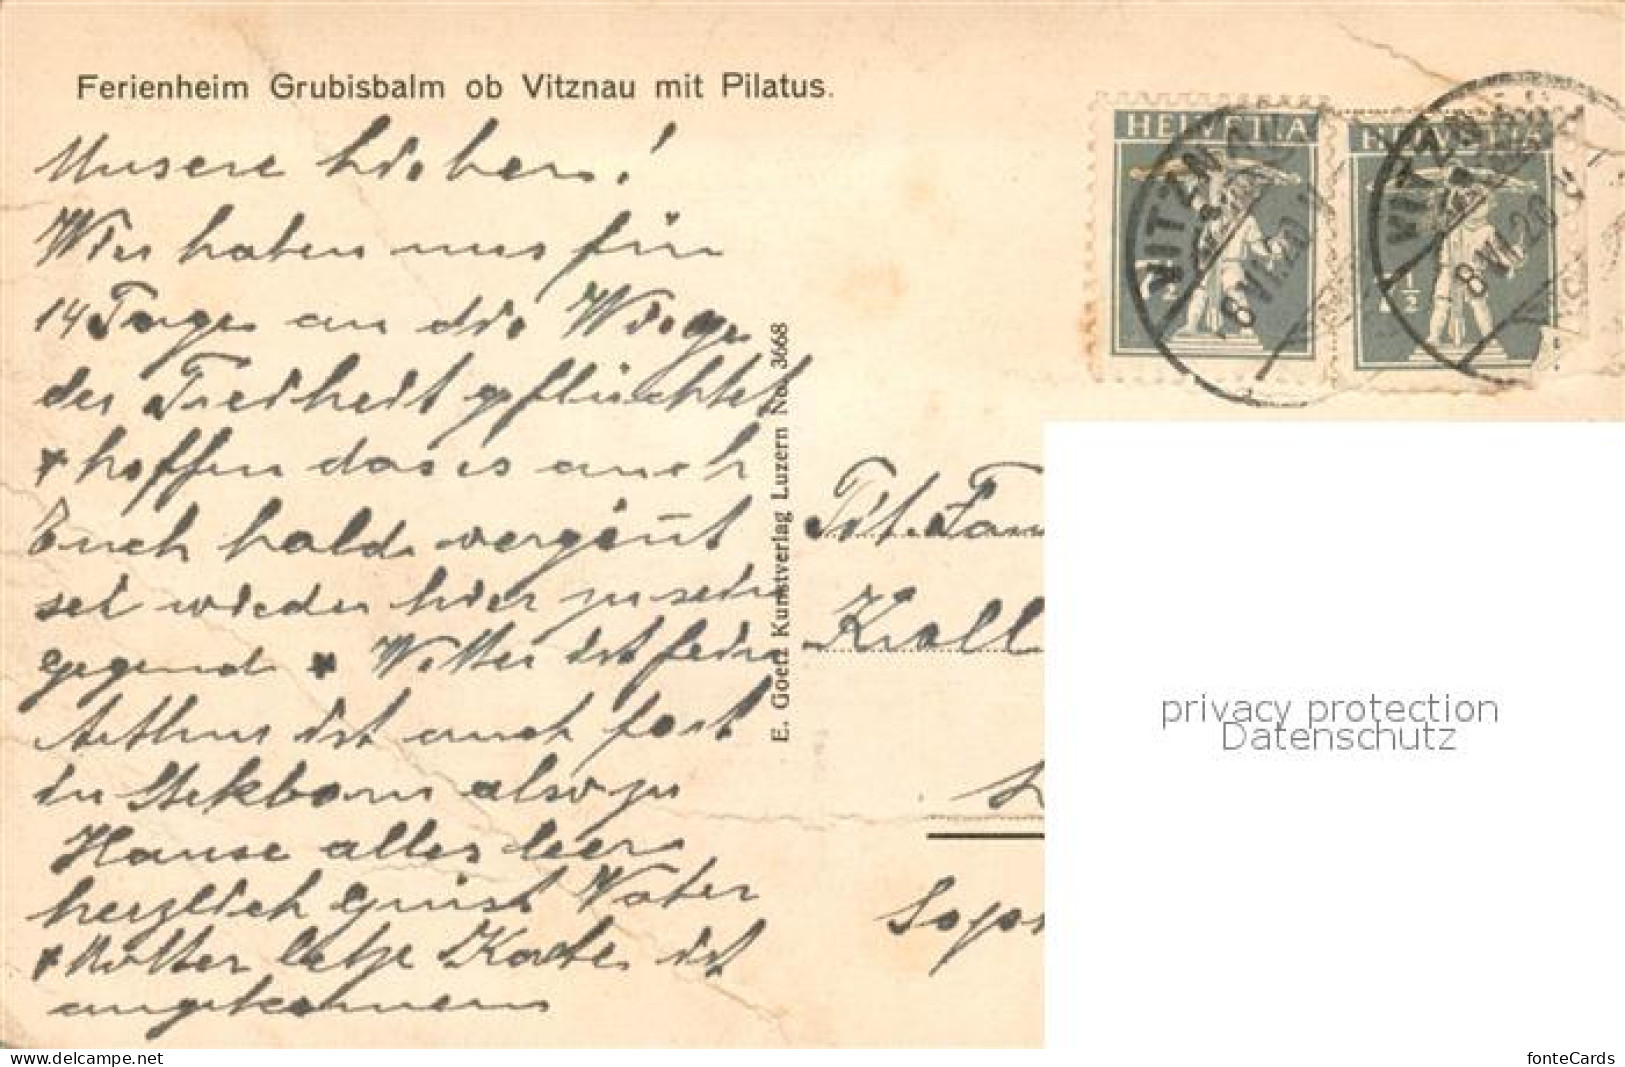 Ferienheim Grubisbalm ob Vitznau mit Pilatus.
Unsere Lieben!
Wir haben uns für
14 Tage an die Wiege
der Freiheit geflüchtet
+ hoffen das es auch
Euch bald vergönt
sei wieder hier zu sein
gegend + Wetter ist fein
Arthur ist auch fort
in also zu
Hause alles leer
herzlich grüsst Vater
+ Mutter letze Karte ist
angekommen
E. Goetz Kunstverlag Luzern No. 3668
HELVETIA
HELVETIA
VITZNAU
8.VI.20
VITZNAU
8.VI.20
2 1/2
Tit. Fam
Kroll
L
Sops
privacy protection
Datenschutz
www.delcampe.net
fonteCards